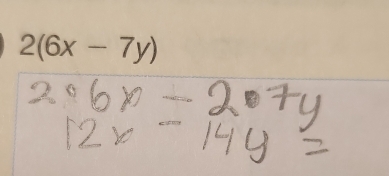 ) 2(6x − 7y)
2•6x − 2•7y
12x − 14y =